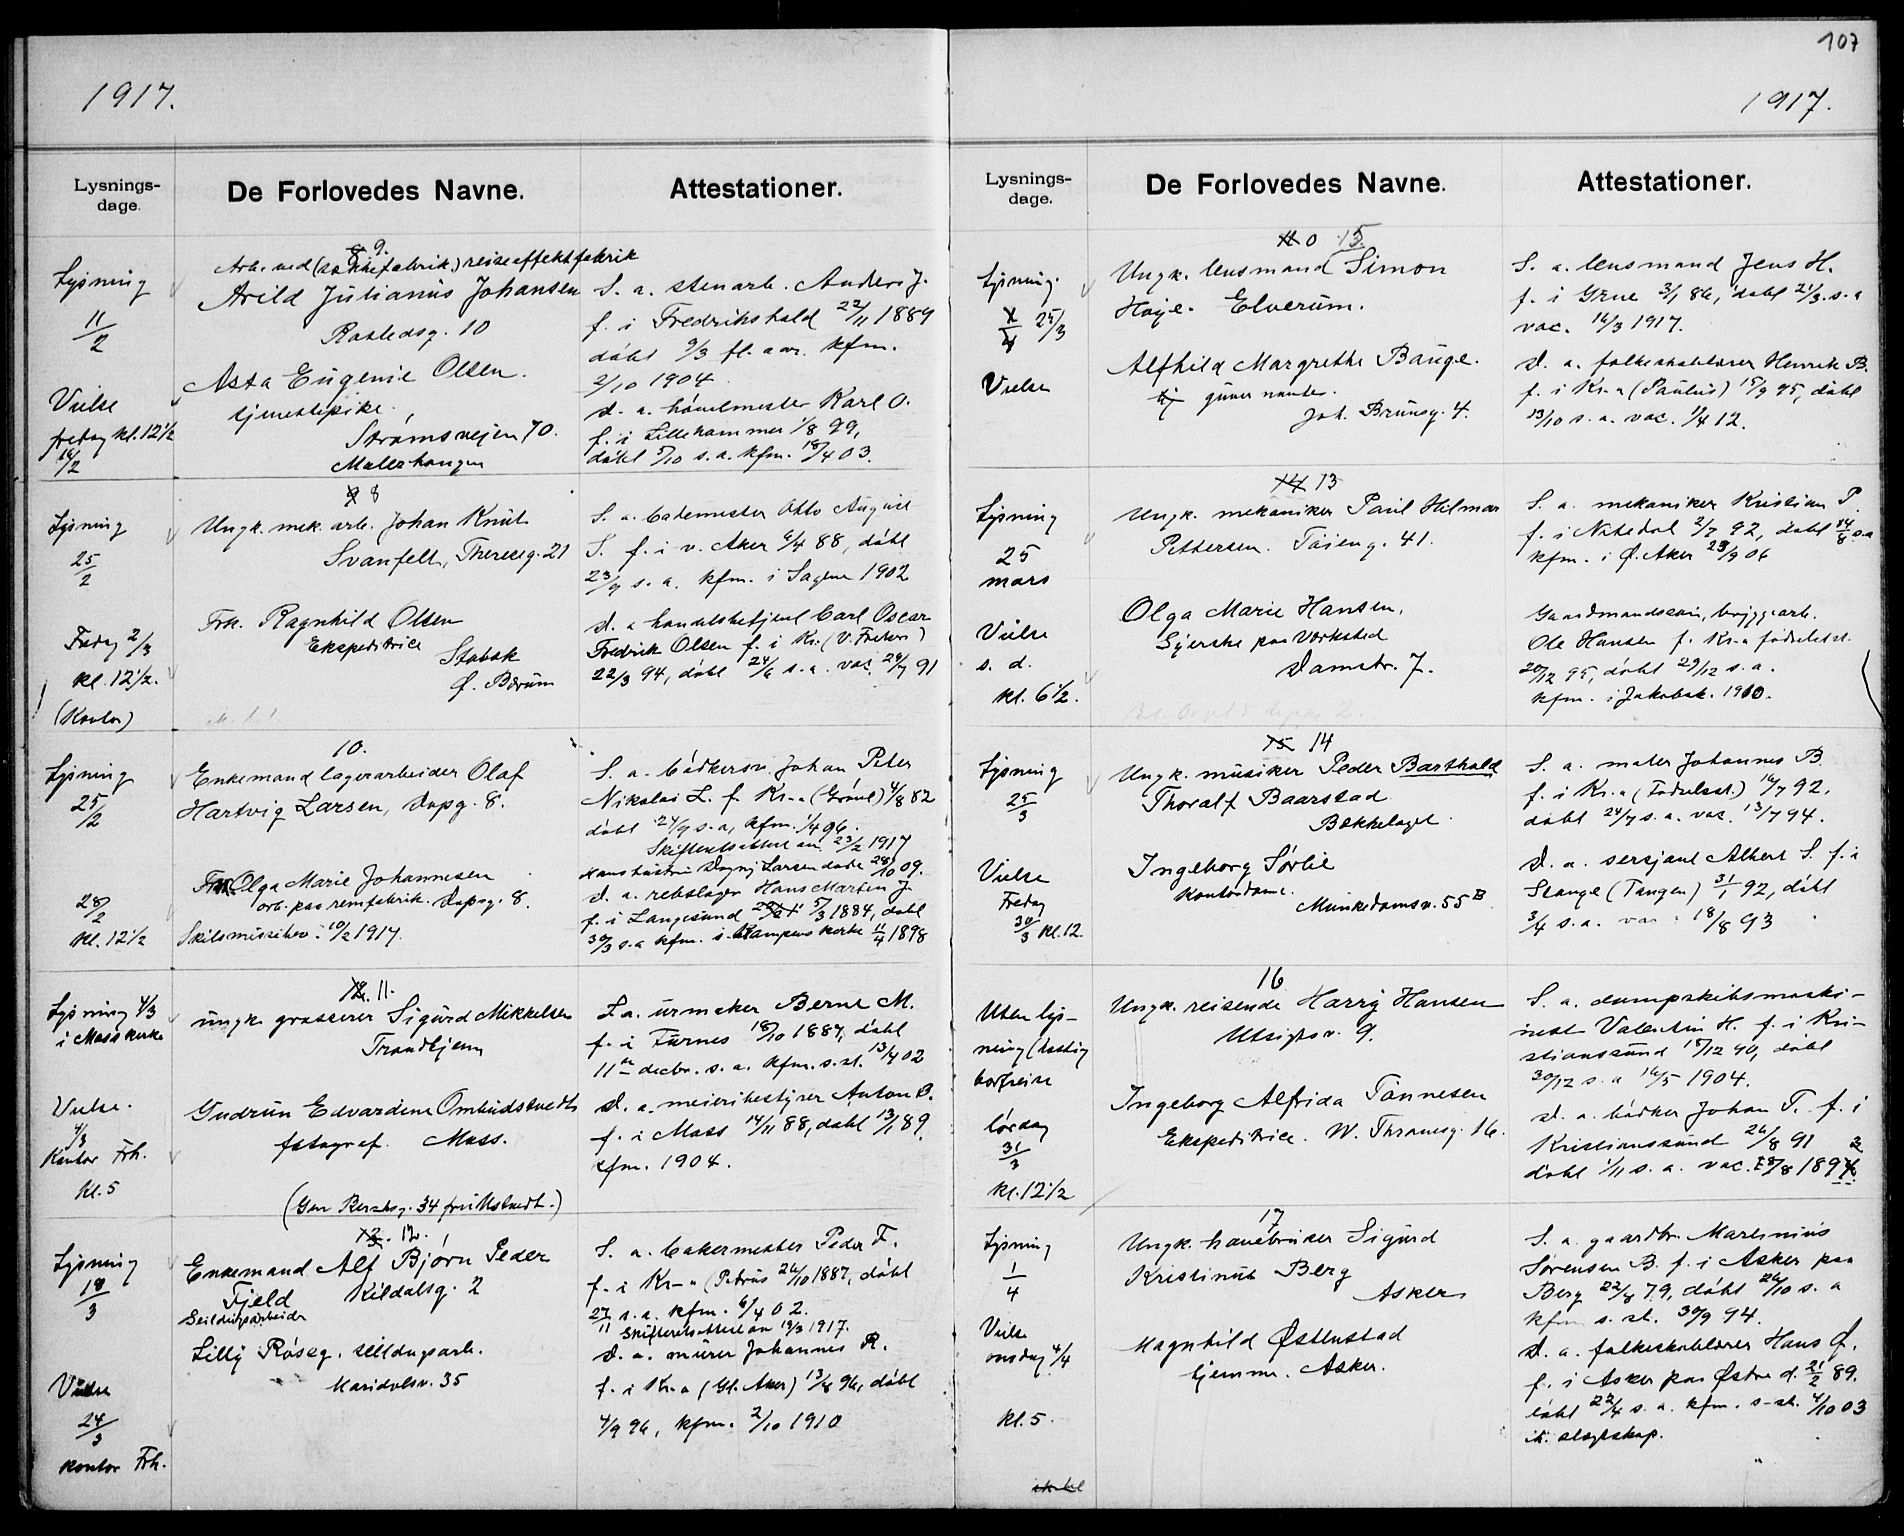 107
1917.
Lysnings-
dage.
De Forlovedes Navne.
Attestationer.
9.
Arb. ved (sækkefabrik.) reiseeffektfabrik
Lysning
11/2
Arild Julianus Johansen
Rostedsg. 10
S. a. stenarb. Anders J.
f. i Fredrikshald 22/11 1889
døbt 9/3 fl. aar. kfm.
2/10 1904.
Vielse
fredag kl. 12 1/2
16/2
Asta Eugenie Olsen.
tjenestepike.
Strømsveien 70.
Malerhaugen
D. a. hóvelmester Karl O.
f. i Lillehammer 1/8 99,
døbt 5/10 s. a. kfm. 18/4 03.
8
Lysning
25/2
Ungk. mek. arb. Johan Knut
Svanfelt, Thereseg. 21
S. a. bademester Otto August
S. f. i v. Aker 6/4 88, døbt
23/9 s. a. kfm. i Sagene 1902
Fredag 2/3
kl. 12 1/2.
(Kontor)
Frk. Ragnhild Olsen
Ekspeditrice
Stabæk
Ø. Bærum
D. a handelsbetjent Carl Oscar
Fredrik Olsen f. i Kr. (V. Frelsers)
22/3 94, døbt 24/6 s. a. vac. 24/7 91
10.
Lysning
25/2
Enkemand lagerarbeider Olaf
Hartvig Larsen, Dapsg. 8.
S. a. bødkersv. Johan Peter
Nikolai L. f. Kr.a (Grønl) 4/8 82
døbt 24/9 s. a, kfm. 1/4 96.
Skifteretsattest av 23/2 1917
Hans hustru Dagny Larsen døde 28/10 09.
28/2
kl. 12 1/2
Olga Marie Johannesen
arb. paa remfabrik. Dapsg. 8.
Skilsmissebev. 10/2 1917.
D. a. rebslager Hans Martin J.
f. i Langesund 5/3 1884, døbt
30/3 s. a kfm. i Kampens kirke 11/4 1898
11.
Lysning 4/3
i Moss kirke
Ungk. grosserer Sigurd Mikkelsen
Trondhjem
S. a. urmaker Bernt M.
f. i Furnes 18/10 1887, døbt
11te decbr. s. a. kfm. s. st. 13/4 02
Vielse.
4/3
Kontor Frh.
kl. 5
Gudrun Edvardine Ombudstvedt
fotograf. Moss.
D. a. meieribestyrer Anton O.
f. i Moss 14/11 88, døbt 13/1 89.
kfm. 1904.
12.
Lysning
18/3
Enkemand Alf Bjørn Peder
Fjeld Kildalsg. 2
Seildugsarbeider
S. a. bakermester Peder F.
f. i Kr-a (Petrus) 26/10 1887, døbt
27/11 s. a. kfm. 6/4 02.
Skifteretsattest av 19/3 1917.
Lilly Róseg. seildugsarb.
Maridalsv. 35
D. a. murer Johannes R.
f. i Kr.a (Gl. Aker) 13/8 96, døbt
4/9 96, kfm. 2/10 1910
Vielse
24/3
kontor Frh.
1917.
Lysnings-
dage.
De Forlovedes Navne.
Attestationer.
15.
Lysning.
25/3
Ungk. lensmand Simon
Hoye. Elverum.
S. a. lensmand Jens H.
f. i Grue 3/1 86, døbt 21/3. s. a
vac. 16/3 1917.
Vielse
Alfhild Margrethe Bauge.
guvernante.
Joh. Brunsg. 4.
D. a. folkeskolelærer Henrik B.
f. i Kr.a (Paulus) 15/9 95, døbt
13/10 s. a. vac. 1/4 12.
13
Lysning
25
mars
Ungk. mekaniker Paul Hilmar
Pettersen. Tøieng. 41.
S. a. mekaniker Kristian P.
f. i Nitedal 2/7 92, døbt 14/8 s. a
kfm. i Ø. Aker 23/9 06
Vielse
s. d.
kl. 6 1/2.
Olga Marie Hansen.
Syerske paa Verksted
Damstr. 7.
Ole Hansen f. Kr.a fødselsst.
20/12 95, døbt 29/12 s. a.
kfm. i Jakobsk. 1910.
14
Lysning
25/3
Ungk. musiker Peder Barthold
Thoralf Baarstad
Bækkelaget.
S. a. maler Johannes B.
f. i Kr.a (Fødselsst.) 16/7 92.
døbt 24/7 s. a. vac. 13/7 94.
Vielse
Fredag
30/3 kl. 12.
Ingeborg Sørlie
Kontordame.
Munkedamsv. 55 B
D. a. sersjant Albert S. f. i
Stange (Tangen) 31/1 92, døbt
3/4 s. a. vac. 18/8 93
16
Uten lys-
ning (hastig
bortreise
lørdag
31/3
kl. 12 1/2
Ungk. reisende Harry Hansen
Utsigtsv. 9.
S. a. dampskibsmaski-
nist Valentin H. f. i Kri-
stianssund 15/12 90, døbt
30/12 s. a 16/5 1904.
Ingeborg Alfrida Tønnesen
Ekspeditrice. W. Thranesg. 16.
D. a. bødker Johan T. f. i
Kristianssund 26/8 91
døbt 1/11 s. a. vac. 28/8 1892.
17
Lysning
1/4
Ungk. havebruker Sigurd
Kristinus Berg
Asker
S. a. gaardbr. Martinius
Sørensen B. f. i Asker paa
Berg 22/8 79, døbt 26/10 s. a
kfm s. st. 30/9 94.
Vielse
onsdag 4/4
kl. 5.
Magnhild Østenstad
hjemme. Asker.
D. a. folkeskolelærer Hans Ø.
f. i Asker paa Østre d. 21/2 89.
døbt 22/4 s. a. kfm. s. st. 4/10 03
ik. slegtskap.